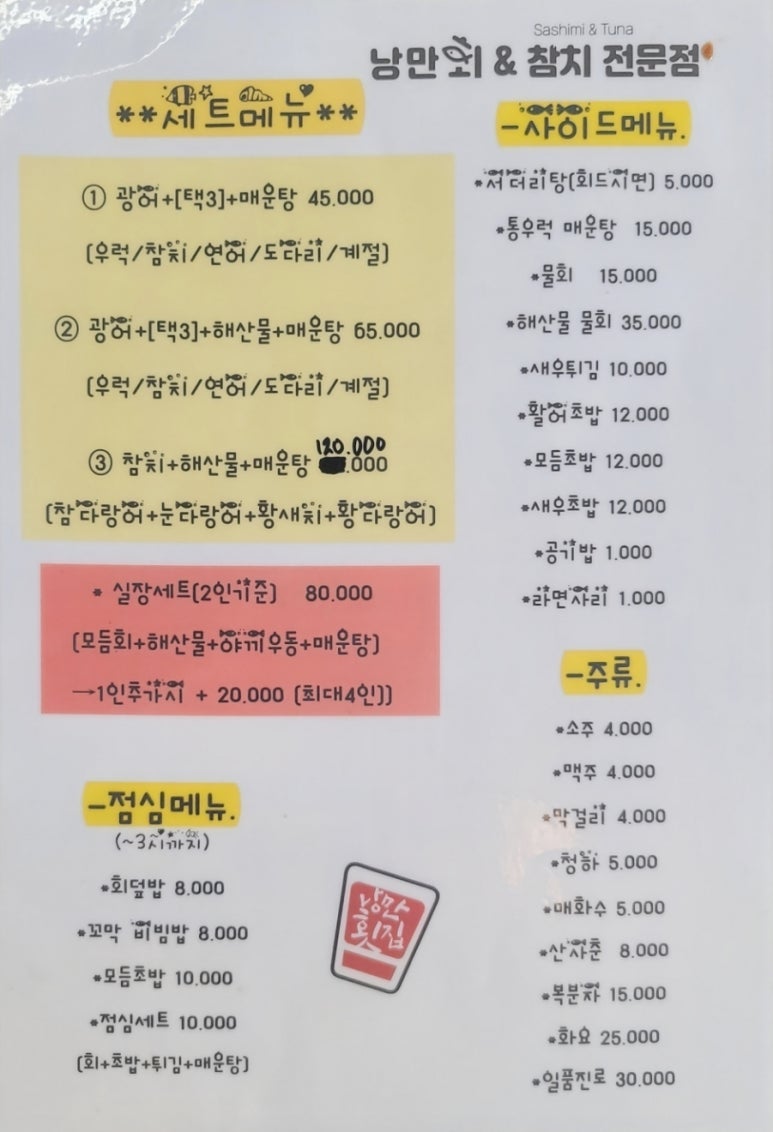 Sashimi & Tuna
낭만회 & 참치 전문점
**세트메뉴**
① 광어+[택3]+매운탕 45.000
(우럭/참치/연어/도다리/계절)
② 광어+[택3]+해산물+매운탕 65.000
(우럭/참치/연어/도다리/계절)
③ 참치+해산물+매운탕 120.000 .000
(참다랑어+눈다랑어+황새치+황다랑어)
* 실장세트(2인기준) 80.000
(모듬회+해산물+야끼우동+매운탕)
→1인추가시 + 20.000 (최대4인))
-점심메뉴.
(~3시까지)
*회덮밥 8.000
*꼬막 비빔밥 8.000
*모듬초밥 10.000
*점심세트 10.000
(회+초밥+튀김+매운탕)
-사이드메뉴.
*서더리탕(회드시면) 5.000
*통우럭 매운탕 15.000
*물회 15.000
*해산물 물회 35.000
*새우튀김 10.000
*활어초밥 12.000
*모듬초밥 12.000
*새우초밥 12.000
*공기밥 1.000
*라면사리 1.000
-주류.
*소주 4.000
*맥주 4.000
*막걸리 4.000
*청하 5.000
*매화수 5.000
*산사춘 8.000
*복분자 15.000
*화요 25.000
*일품진로 30.000
낭만
횟집